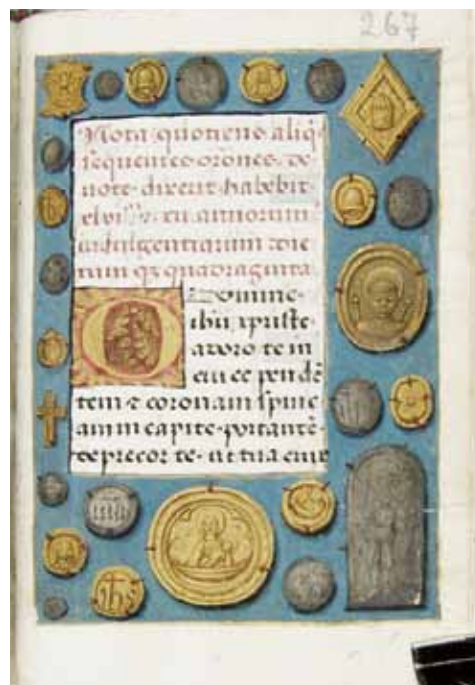 267
Nota quotiens aliq̃
sequentes orões de
uote dixerit habebit
annorum
indulgentiarum
quadraginta
O Domine
ihu xpriste
adoro te in
cruce pendẽ
tem ⁊ coronam spine
am in capite portantẽ
deprecor te ut tua crux
ihs